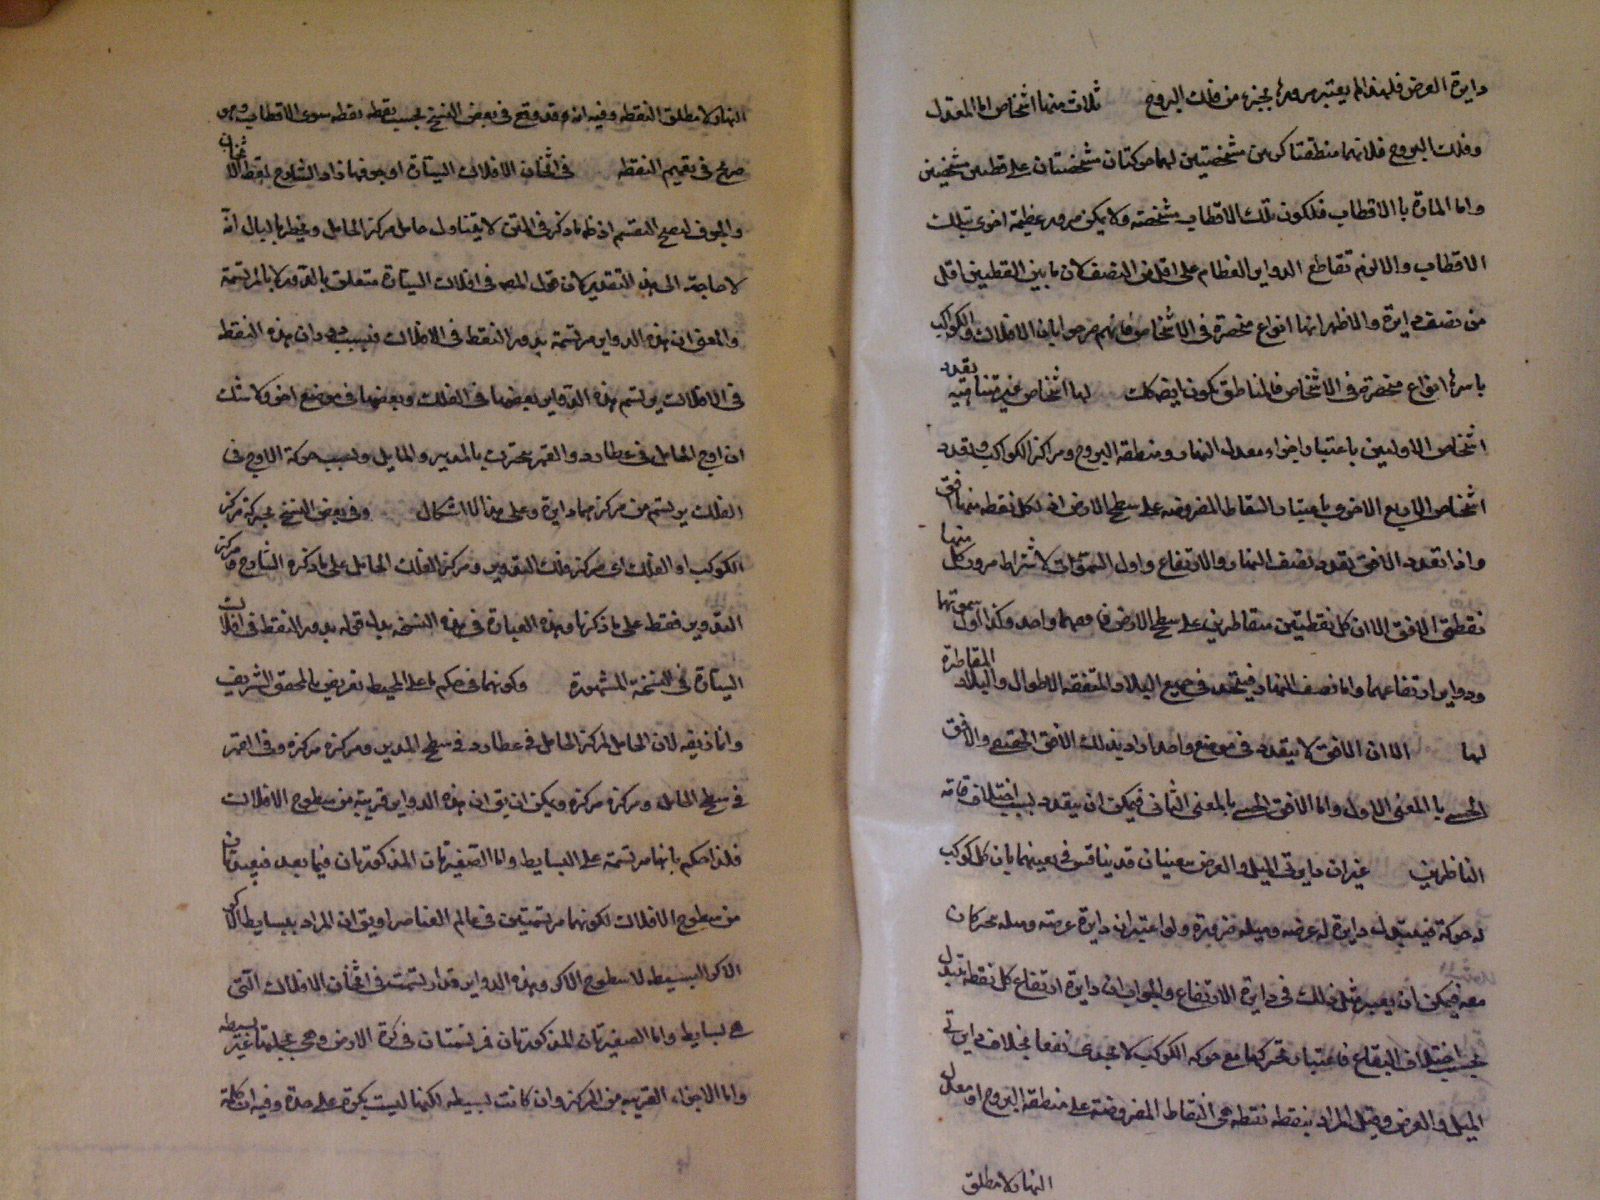 دايرة العرض فلهذا لم يعتبر مروره بجزء من فلك البروج ثلاث منها اشخاص اما المعدل
وفلك البروج فلانهما منطقتا كرتين مشخصتين لهما حركتان مشخصتان على قطبين مشخصين
واما المارة بالاقطاب فلكون تلك الاقطاب مشخصة ولا يمكن مرور عظيمة اخرى بتلك
الاقطاب والا لزم تقاطع الدواير العظام على اقل من النصف لان ما بين القطبين اقل
من نصف دايرة والاظهر انها انواع منحصرة في الاشخاص فانهم صرحوا بان الافلاك والكواكب
باسرها انواع منحصرة في الاشخاص فالمناطق تكون ايضا كذلك لها اشخاص غير متناهية بعدد
اشخاص الاوليين باعتبار اجزاء معدل النهار ومنطقة البروج ومراكز الكواكب وبعدد
اشخاص الاربع الاخرى باعتبار النقاط المفروضة على سطح الارض اذ لكل نقطة منها افق
واذا تعدد الافق تعدد نصف النهار والارتفاع واول السموات لاشتراط مرور كل منها
نقطتي الافق الا ان كل نقطتين متقاطرتين على سطح الارض افقهما واحد وكذا اول سموتهما
ودواير ارتفاعهما واما نصف النهار فيتحد في جميع البلاد المتفقة الاطوال والبلاد المقاطرة
لها الا ان الافق لا يتعدد في موضع واحد اراد بذلك الافق الحقيقي والافق
الحسي بالمعنى الاول واما الافق الحسي بالمعنى الثاني فيمكن ان يتعدد بسبب اختلاف قامة
الناظرين غير ان دايرتي الميل والعرض معينان قد يناقش في تعينهما بان كل كوكب
له حركة فيتبدل دايرة له عرضه وميله ضرورة ولو اعتبر ان دايرة عرضه وميله تتحركان
معه فيمكن ان يعتبر مثل ذلك في دايرة الارتفاع والجواب ان دايرة ارتفاع كل نقطة تتبدل
بحسب اختلاف البقاع فاعتبار تحركها مع حركة الكوكب لا يجدى نفعا بخلاف دايرتي
الميل والعرض وقيل المراد بنقطة نقطة هي النقاط المفروضة على منطقة البروج او معدل
النهار لا مطلق
النهار لا مطلق النقطة وفيه انه قد وقع في بعض النسخ بحسب نقطة نقطة سوى الاقطاب وهو
صريح في تعميم النقطة في اثخان الافلاك السيارة او جوفها زاد الشارح لفظ الاثخان
والجوف ليصح التقسيم اذ ظاهر ما ذكر في المتن لا يتناول حامل مركز الحامل ويخطر بالبال انه
لا حاجة الى هذا التقدير لان قول المص في افلاك السيارة متعلق بالدور لا بالمرتسمة
والمعنى ان هذه الدواير مرتسمة بدور النقط في الافلاك فبسبب دوران هذه النقط
في الافلاك يرتسم هذه الدواير بعضها في الفلك وبعضها في موضع اخر ولا شك
ان اوج الحامل في عطارد والقمر يتحرك بالمدير والمايل وبسبب حركة الاوج في
الفلك يرتسم من مركزهما دايرة وعلى هذا لا اشكال وفي بعض النسخ بحركة مركز
الكوكب او الفلك اى مركز فلك التدوير ومركز الفلك الحامل على ما ذكره الشارح او مركز
التدوير فقط على ما ذكرنا وهذه العبارة في هذه النسخة بدل قوله بدور النقط في افلاك
السيارة في النسخة المشهورة وكونهما في حكم ما على المحيط تعريض بالمحقق الشريف
وانما زيفه لان الحامل لمركز الحامل في عطارد في سطح المدير ومركزه مركزه وفي القمر
في سطح المايل ومركزه مركزه ويمكن ان يق ان هذه الدواير قريبة من سطوح الافلاك
فلذا حكم بانها مرتسمة على البسايط واما الصغيرتان المذكورتان فيما بعد فبعيدتان
من سطوح الافلاك لكونهما مرتسمتين في عالم العناصر او يق ان المراد ببسايط الاكر
الاكر البسيطة لا سطوح الاكر وهذه الدواير قد ارتسمت في اثخان الافلاك التي
هي بسايط واما الصغيرتان المذكورتان فمرتسمتان في كرة الارض وهي بجملتها غير بسيطة
واما الاجزاء القريبة من المركز وان كانت بسيطة لكنها ليست بكرة على حدة وفيه ان كلمة